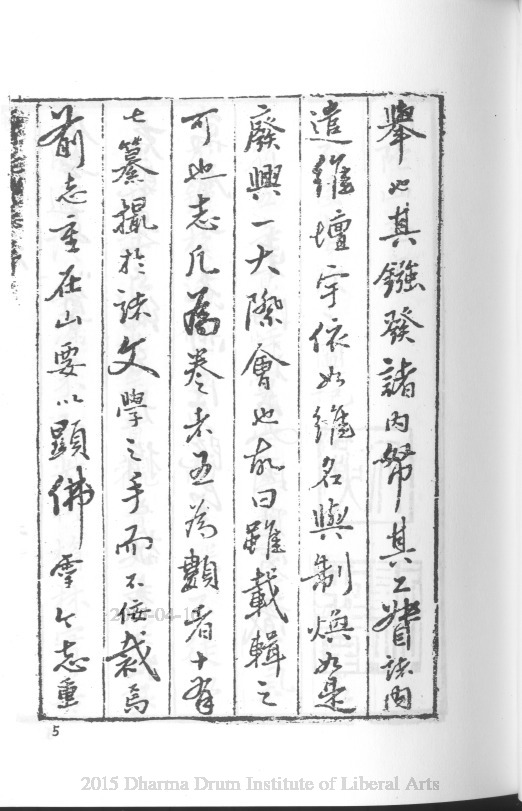 舉也其鏹發諸內帑其工督諸內
遣維壇宇依如維名與制煥如是
廢興一大際會也故曰雖載輯之
可也志凡為卷者五為類者十有
七纂撮於諸文學之手而不佞裁焉
前志重在山要以顯佛靈今志重
5
2015 Dharma Drum Institute of Liberal Arts